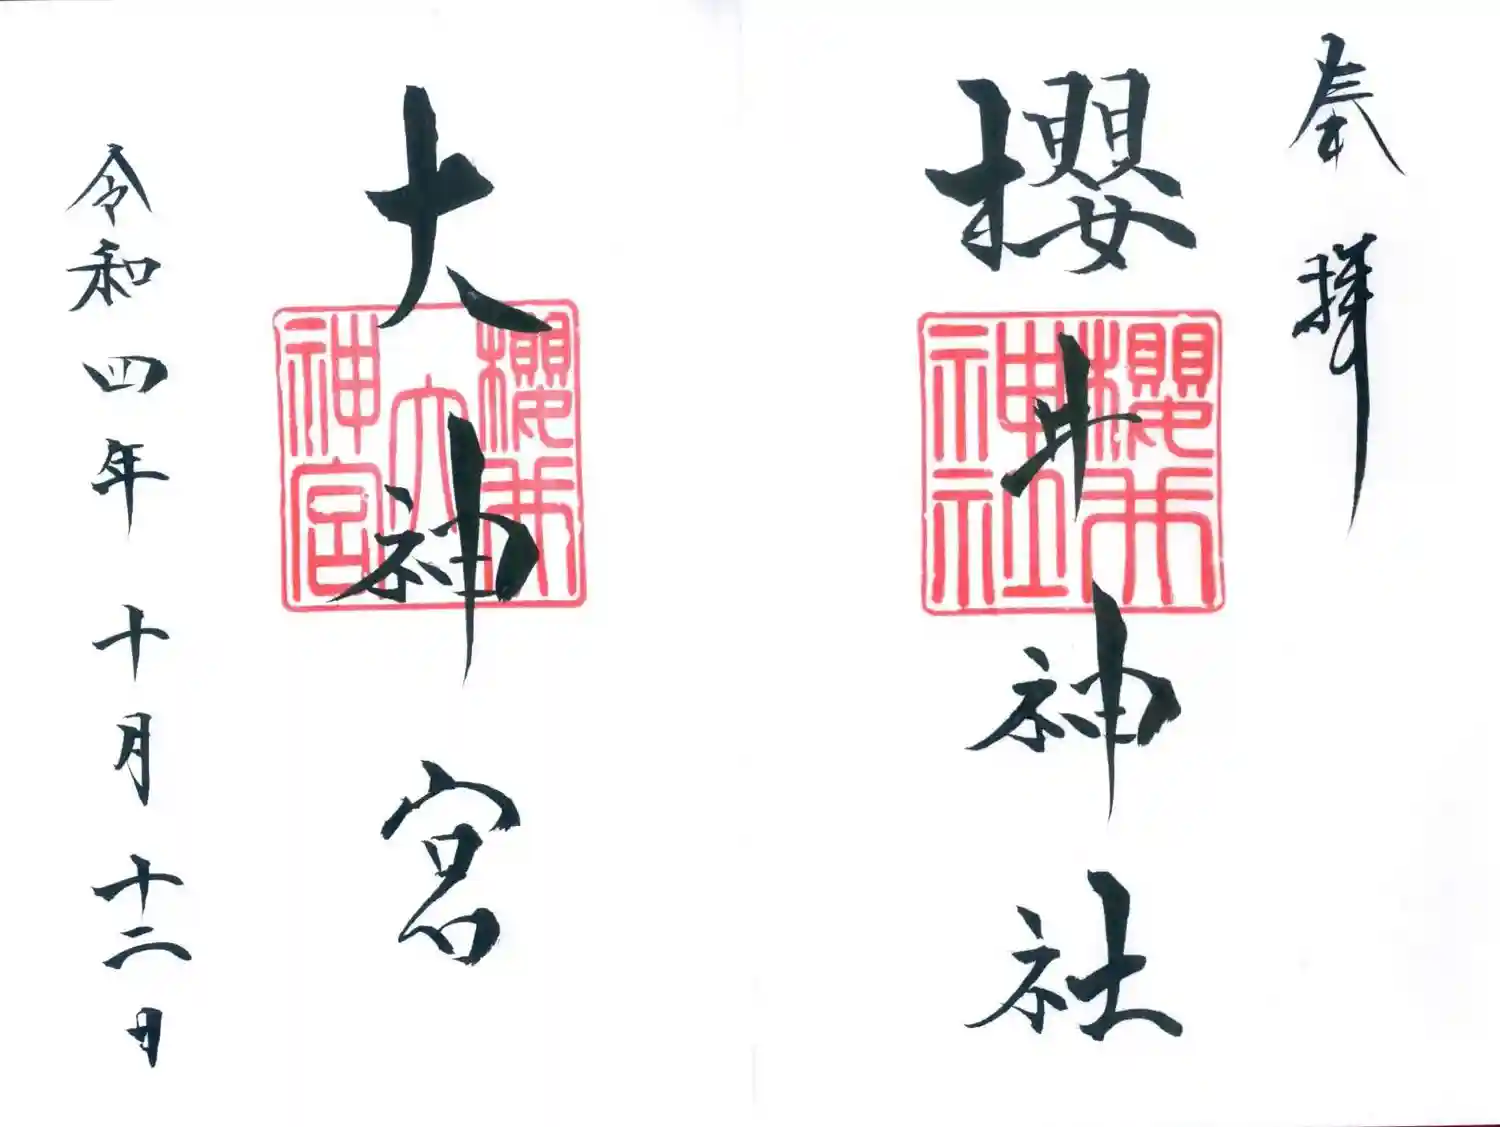 奉拝
櫻井神社
櫻井神社
大神宮
櫻井大神宮
令和四年十月十二日